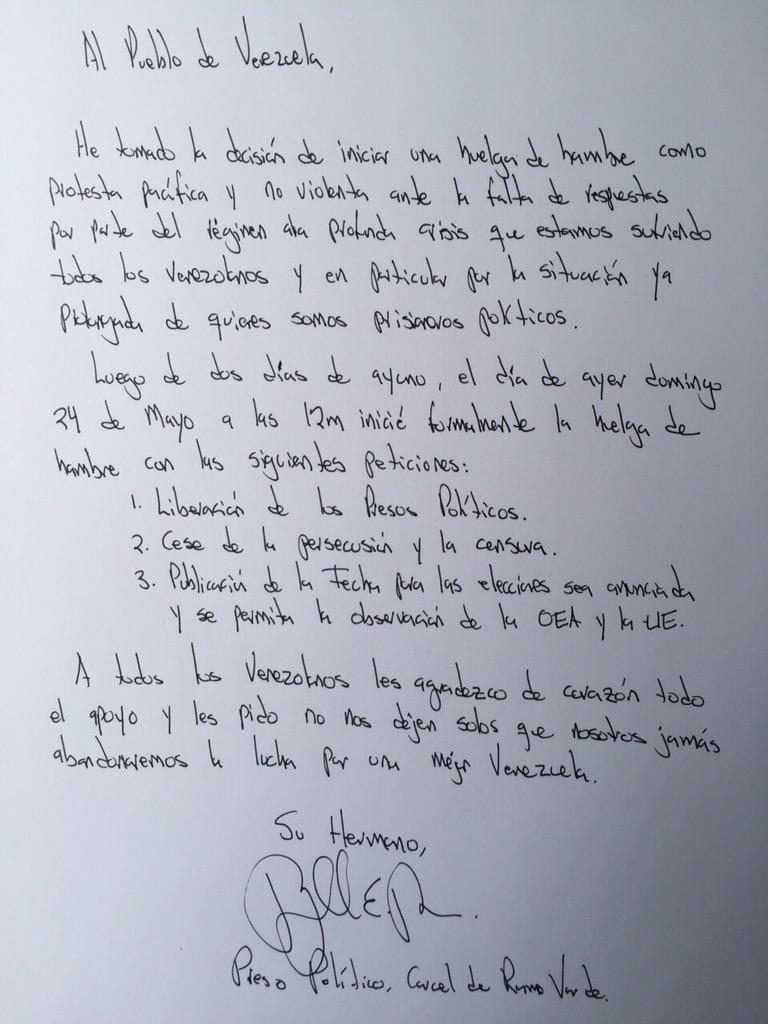 Al Pueblo de Venezuela,
He tomado la decisión de iniciar una huelga de hambre como
protesta pacífica y no violenta ante la falta de respuestas
por parte del régimen a la profunda crisis que estamos sufriendo
todos los venezolanos y en particular por la situación ya
prolongada de quienes somos prisioneros políticos.
Luego de dos días de ayuno, el día de ayer domingo
24 de Mayo a las 12m inicié formalmente la huelga de
hambre con las siguientes peticiones:
1. Liberación de los Presos Políticos.
2. Cese de la persecusión y la censura.
3. Publicación de la Fecha para las elecciones sea anunciada
y se permita la observación de la OEA y la UE.
A todos los Venezolanos les agradezco de corazón todo
el apoyo y les pido no nos dejen solos que nosotros jamás
abandonaremos la lucha por una mejor Venezuela.
Su Hermano,
Preso Político, Carcel de Ramo Verde.